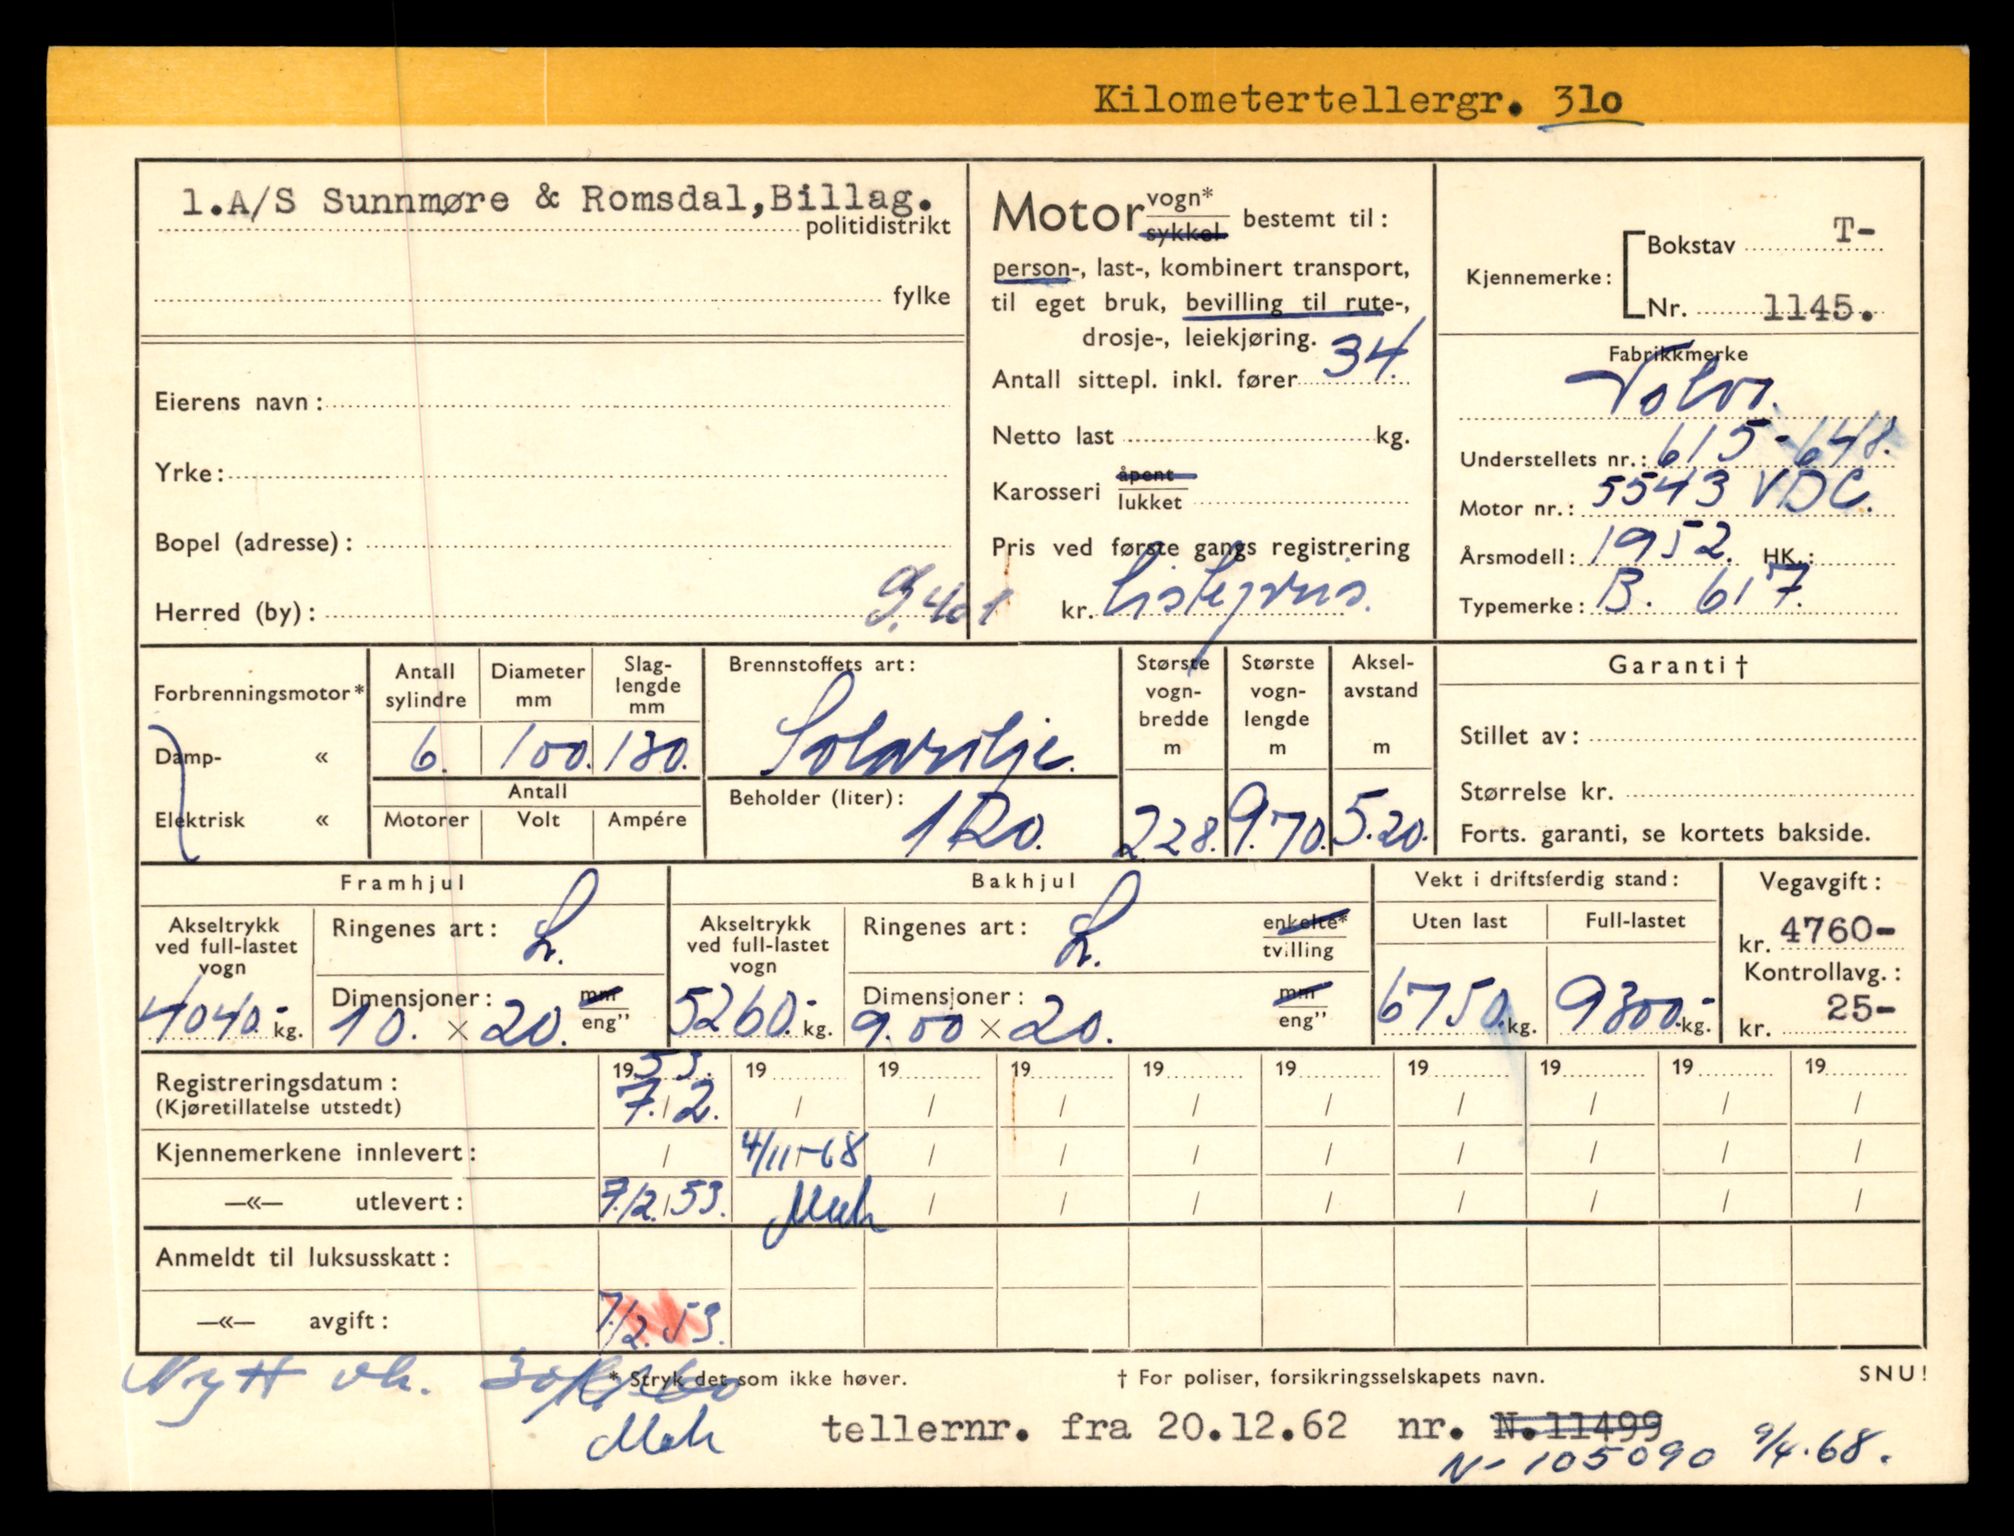 Kilometertellergr. 31o
1.A/S Sunnmøre & Romsdal,Billag.
politidistrikt
fylke
Eierens navn:
Yrke:
Bopel (adresse):
Herred (by):
9.401
Motor vogn* sykkel bestemt til:
person-, last-, kombinert transport,
til eget bruk, bevilling til rute-,
drosje-, leiekjøring.
Antall sittepl. inkl. fører 34.
Netto last kg.
Karosseri åpent lukket
Pris ved første gangs registrering
kr. Listepris.
Kjennemerke: Bokstav T-
Nr. 1145.
Fabrikkmerke
Volvo.
Understellets nr.: 615-648.
Motor nr.: 5543 VDC.
Årsmodell: 1952. HK.:
Typemerke: B. 617.
Forbrenningsmotor*
Damp- «
Elektrisk «
Antall sylindre 6.
Diameter mm 100.
Slaglengde mm 130.
Antall
Motorer Volt Ampére
Brennstoffets art:
Solarolje.
Beholder (liter):
120.
Største vogn-bredde m 2.28.
Største vogn-lengde m 9.70.
Aksel-avstand m 5.20.
Garanti†
Stillet av:
Størrelse kr.
Forts. garanti, se kortets bakside.
Framhjul
Akseltrykk ved full-lastet vogn
4040.- kg.
Ringenes art: L.
Dimensjoner: mm eng”
10. × 20.
Bakhjul
Akseltrykk ved full-lastet vogn
5260.- kg.
Ringenes art: L. enkelte* tvilling
Dimensjoner: mm eng”
9.00 × 20.
Vekt i driftsferdig stand:
Uten last Full-lastet
6750. kg. 9300.- kg.
Vegavgift:
kr. 4760-
Kontrollavg.:
kr. 25-
Registreringsdatum: 1953. 19 19 19 19 19 19 19 19 19
(Kjøretillatelse utstedt) 7./2. / / / / / / / / /
Kjennemerkene innlevert: / 4/11-68 / / / / / / / /
—«— utlevert: 7./2. 53. / / / / / / / /
Anmeldt til luksusskatt:
—«— avgift: 7/2. 53.
* Stryk det som ikke høver. † For poliser, forsikringsselskapets navn. SNU!
Nytt vk.
tellernr. fra 20.12.62 nr. N.11499
N- 105090 9/4.68.